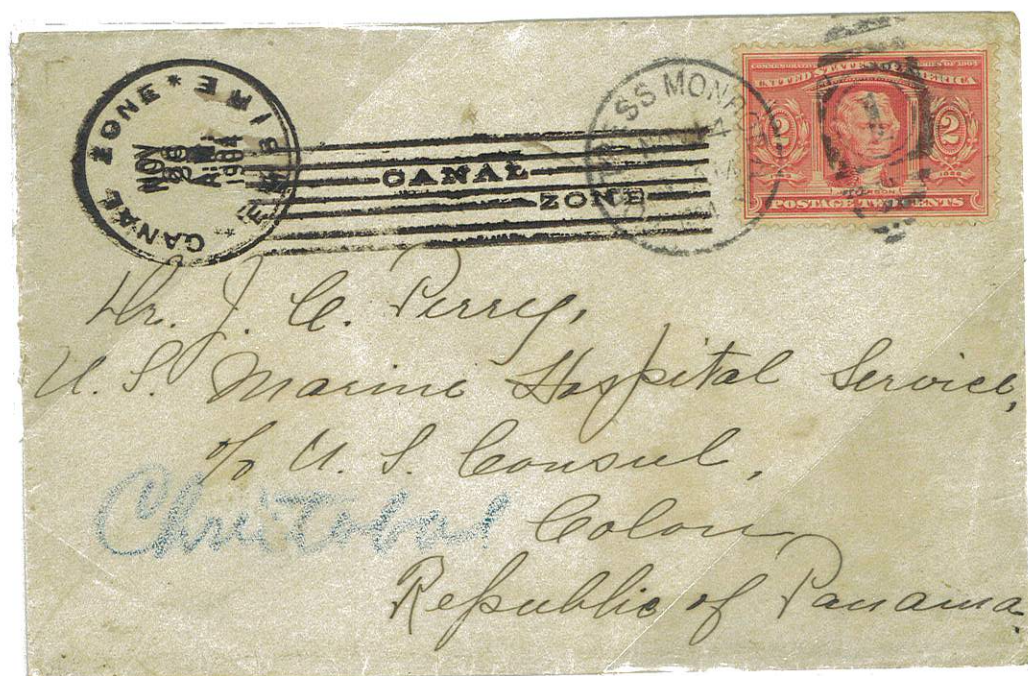 CANAL ZONE * EMPIRE *
NOV
26
1904
CANAL
ZONE
ESS MONRO
UNITED STATES OF AMERICA
2
2
POSTAGE TWO CENTS
Dr. J. C. Perry,
U. S. Marine Hospital Service,
c/o U. S. Consul,
Christobal Colon,
Republic of Panama.